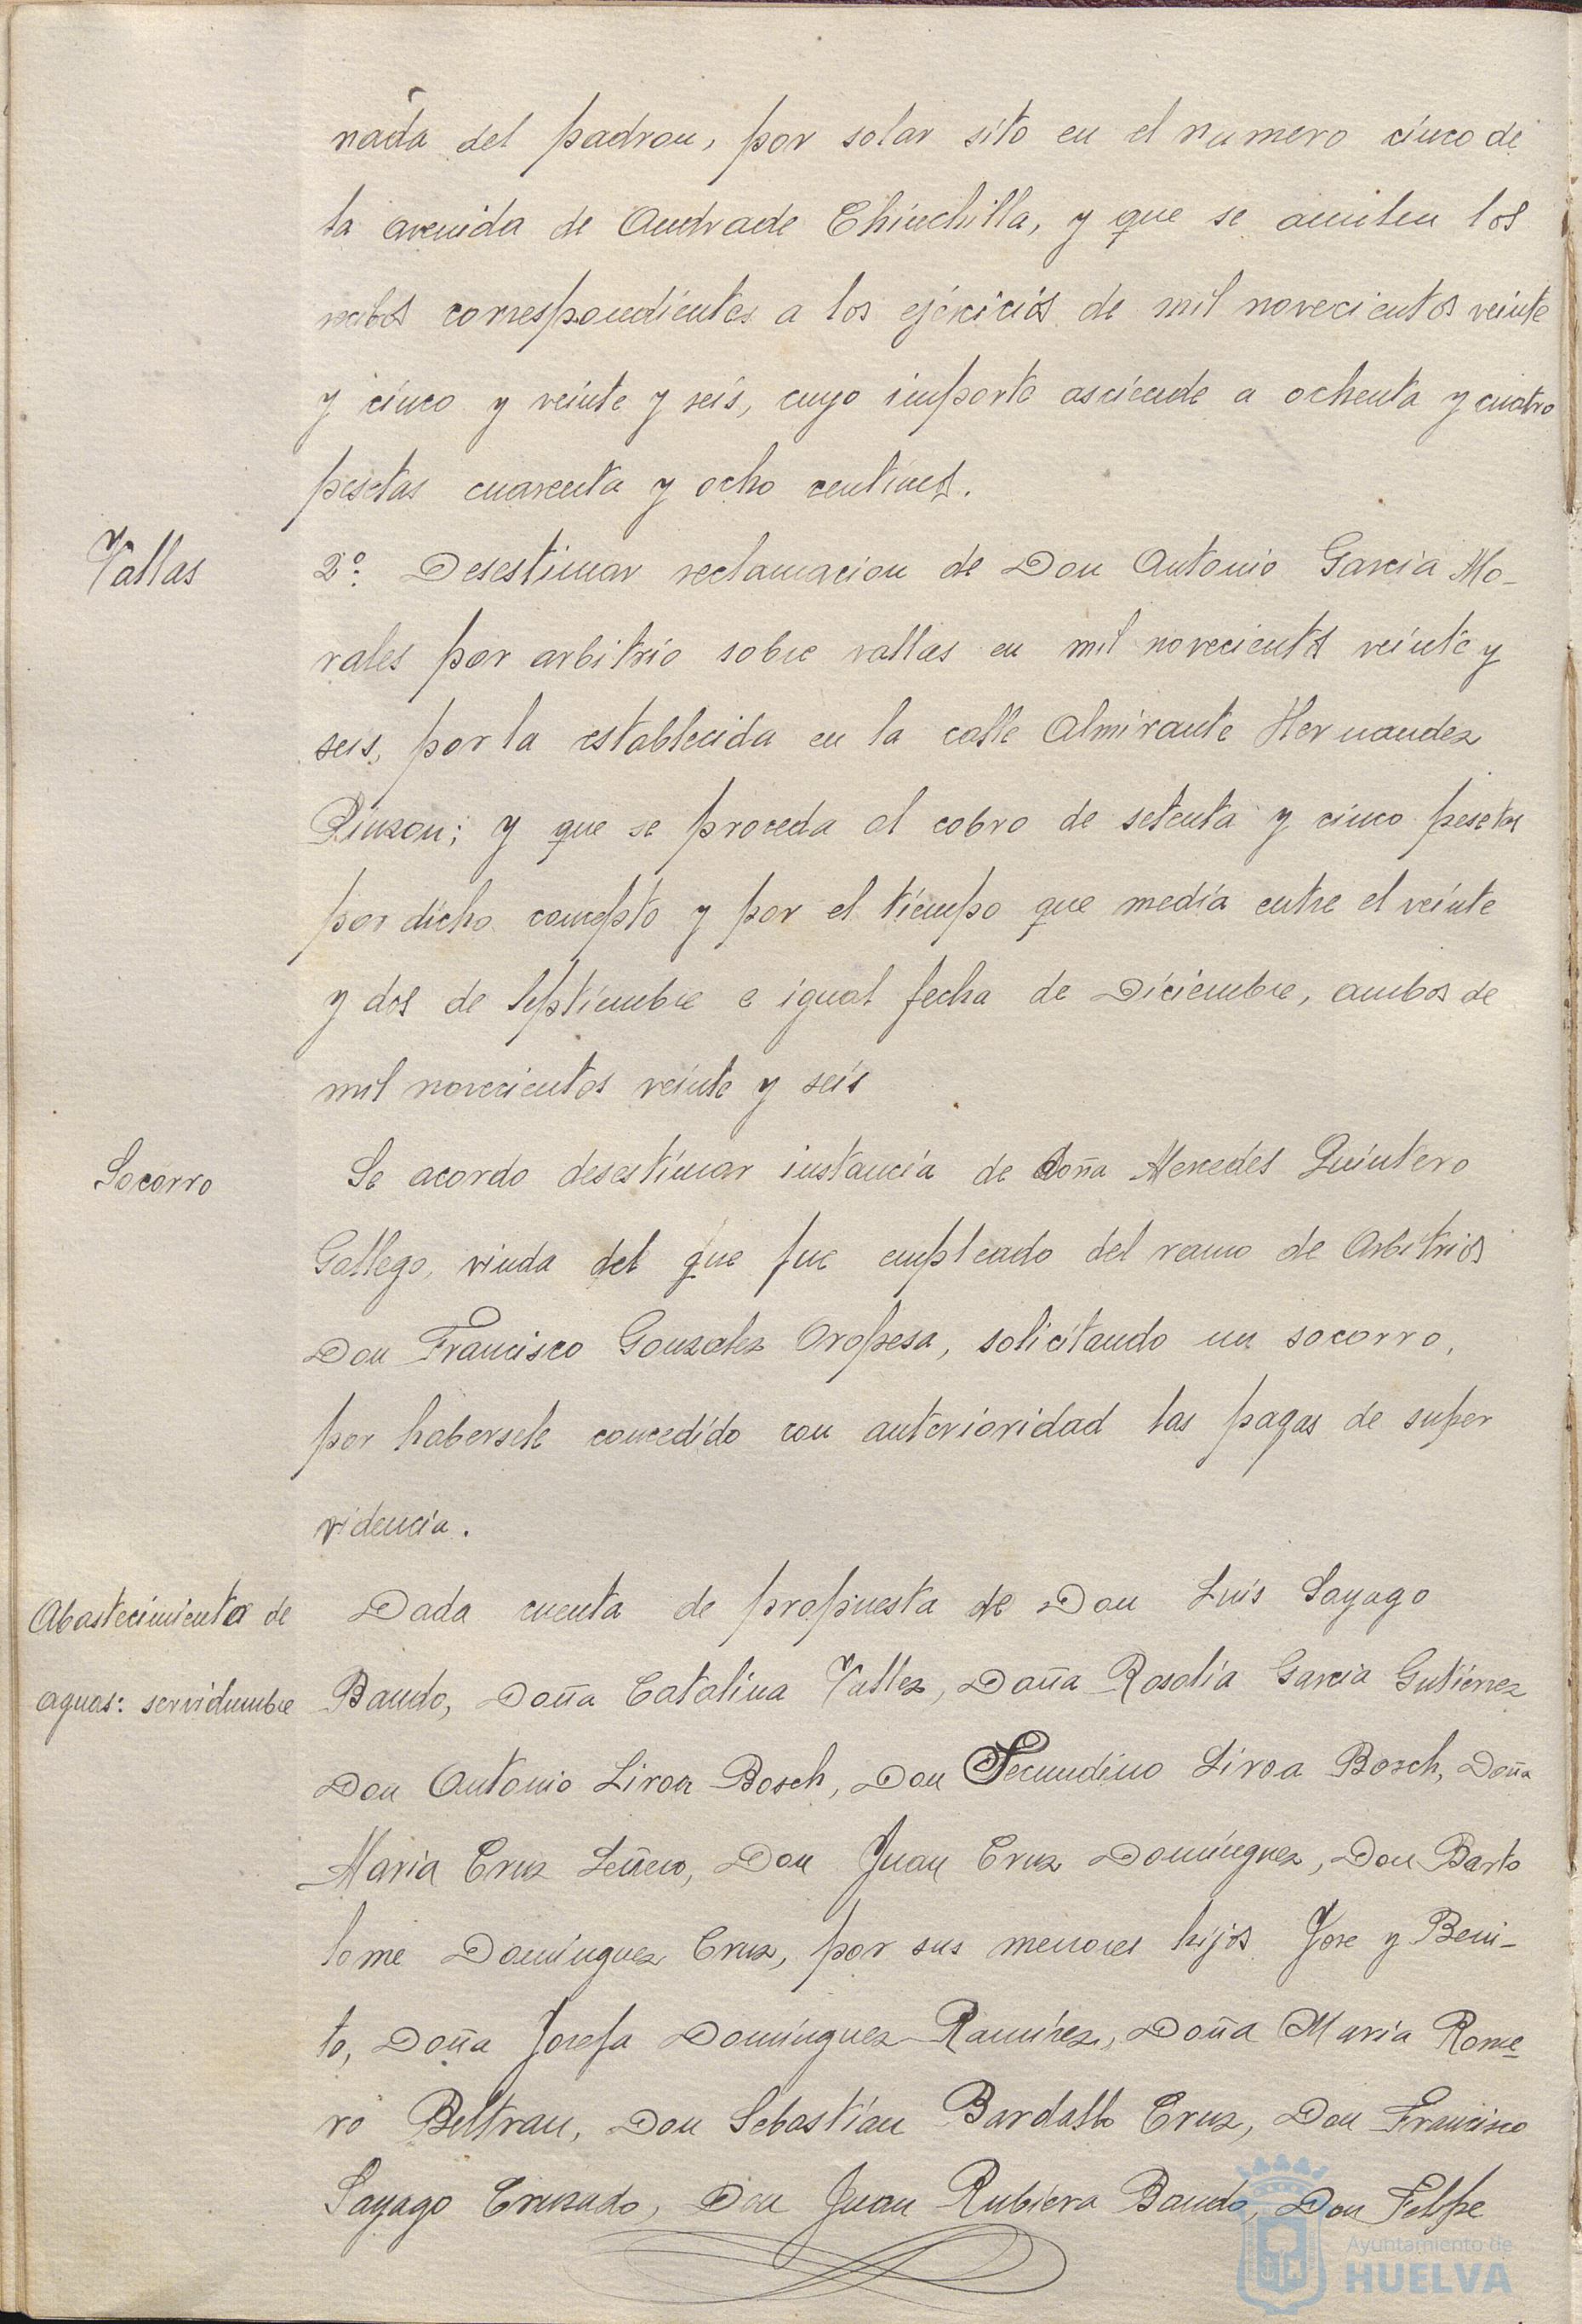 nada del padron, por solar sito en el numero cinco de
la avenida de Andrade Chinchilla, y que se anulen los
recibos correspondientes a los ejercicios de mil novecientos veinte
y cinco y veinte y seis, cuyo importe asciende a ochenta y cuatro
pesetas cuarenta y ocho centimos.
Vallas
2º. Desestimar reclamacion de Don Antonio Garcia Mo-
rales por arbitrio sobre vallas en mil novecientos veinte y
seis, por la establecida en la calle Almirante Hernandez
Pinzon; y que se proceda al cobro de setenta y cinco pesetas
por dicho concepto y por el tiempo que media entre el veinte
y dos de Septiembre e igual fecha de Diciembre, ambos de
mil novecientos veinte y seis
Socorro
Se acordo desestimar instancia de doña Mercedes Quintero
Gallego, viuda del que fue empleado del ramo de Arbitrios
Don Francisco Gonzalez Oropesa, solicitando un socorro,
por habersele concedido con anterioridad las pagas de super
videncia.
Abastecimiento de
aguas: servidumbre
Dada cuenta de propuesta de Don Luis Sayago
Bando, Doña Catalina Vallez, Doña Rosalia Garcia Gutierrez
Don Antonio Liroa Bosch, Don Secundino Liroa Bosch, Doña
Maria Cruz Leñero, Don Juan Cruz Dominguez, Don Barto
lome Dominguez Cruz, por sus menores hijos Jose y Beni-
to, Doña Josefa Dominguez Ramirez, Doña Maria Rome-
ro Beltran, Don Sebastian Bardallo Cruz, Don Francisco
Sayago Cruzado, Don Juan Rubiera Bando, Don Felipe
Ayuntamiento de
HUELVA